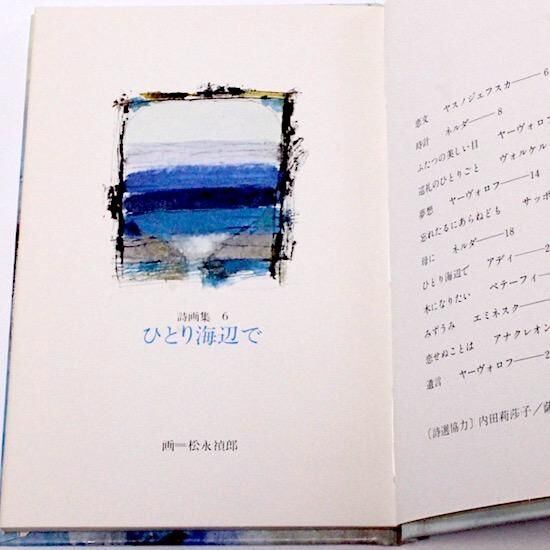 詩画集 6
ひとり海辺で
画＝松永禎郎
恋文 ヤスノジェフスカ——6
時計 ネルダ——8
ふたつの美しい目 ヤーヴォロ
巡礼のひとりごと ヴォルケル
夢想 ヤーヴォロフ——14
忘れたるにあらねども サッポ
母に ネルダ——18
ひとり海辺で アディ——2
木になりたい ペテーフィ
みずうみ エミネスク——
恋せぬことは アナクレオン
遺言 ヤーヴォロフ——2
〔詩選協力〕内田莉莎子／